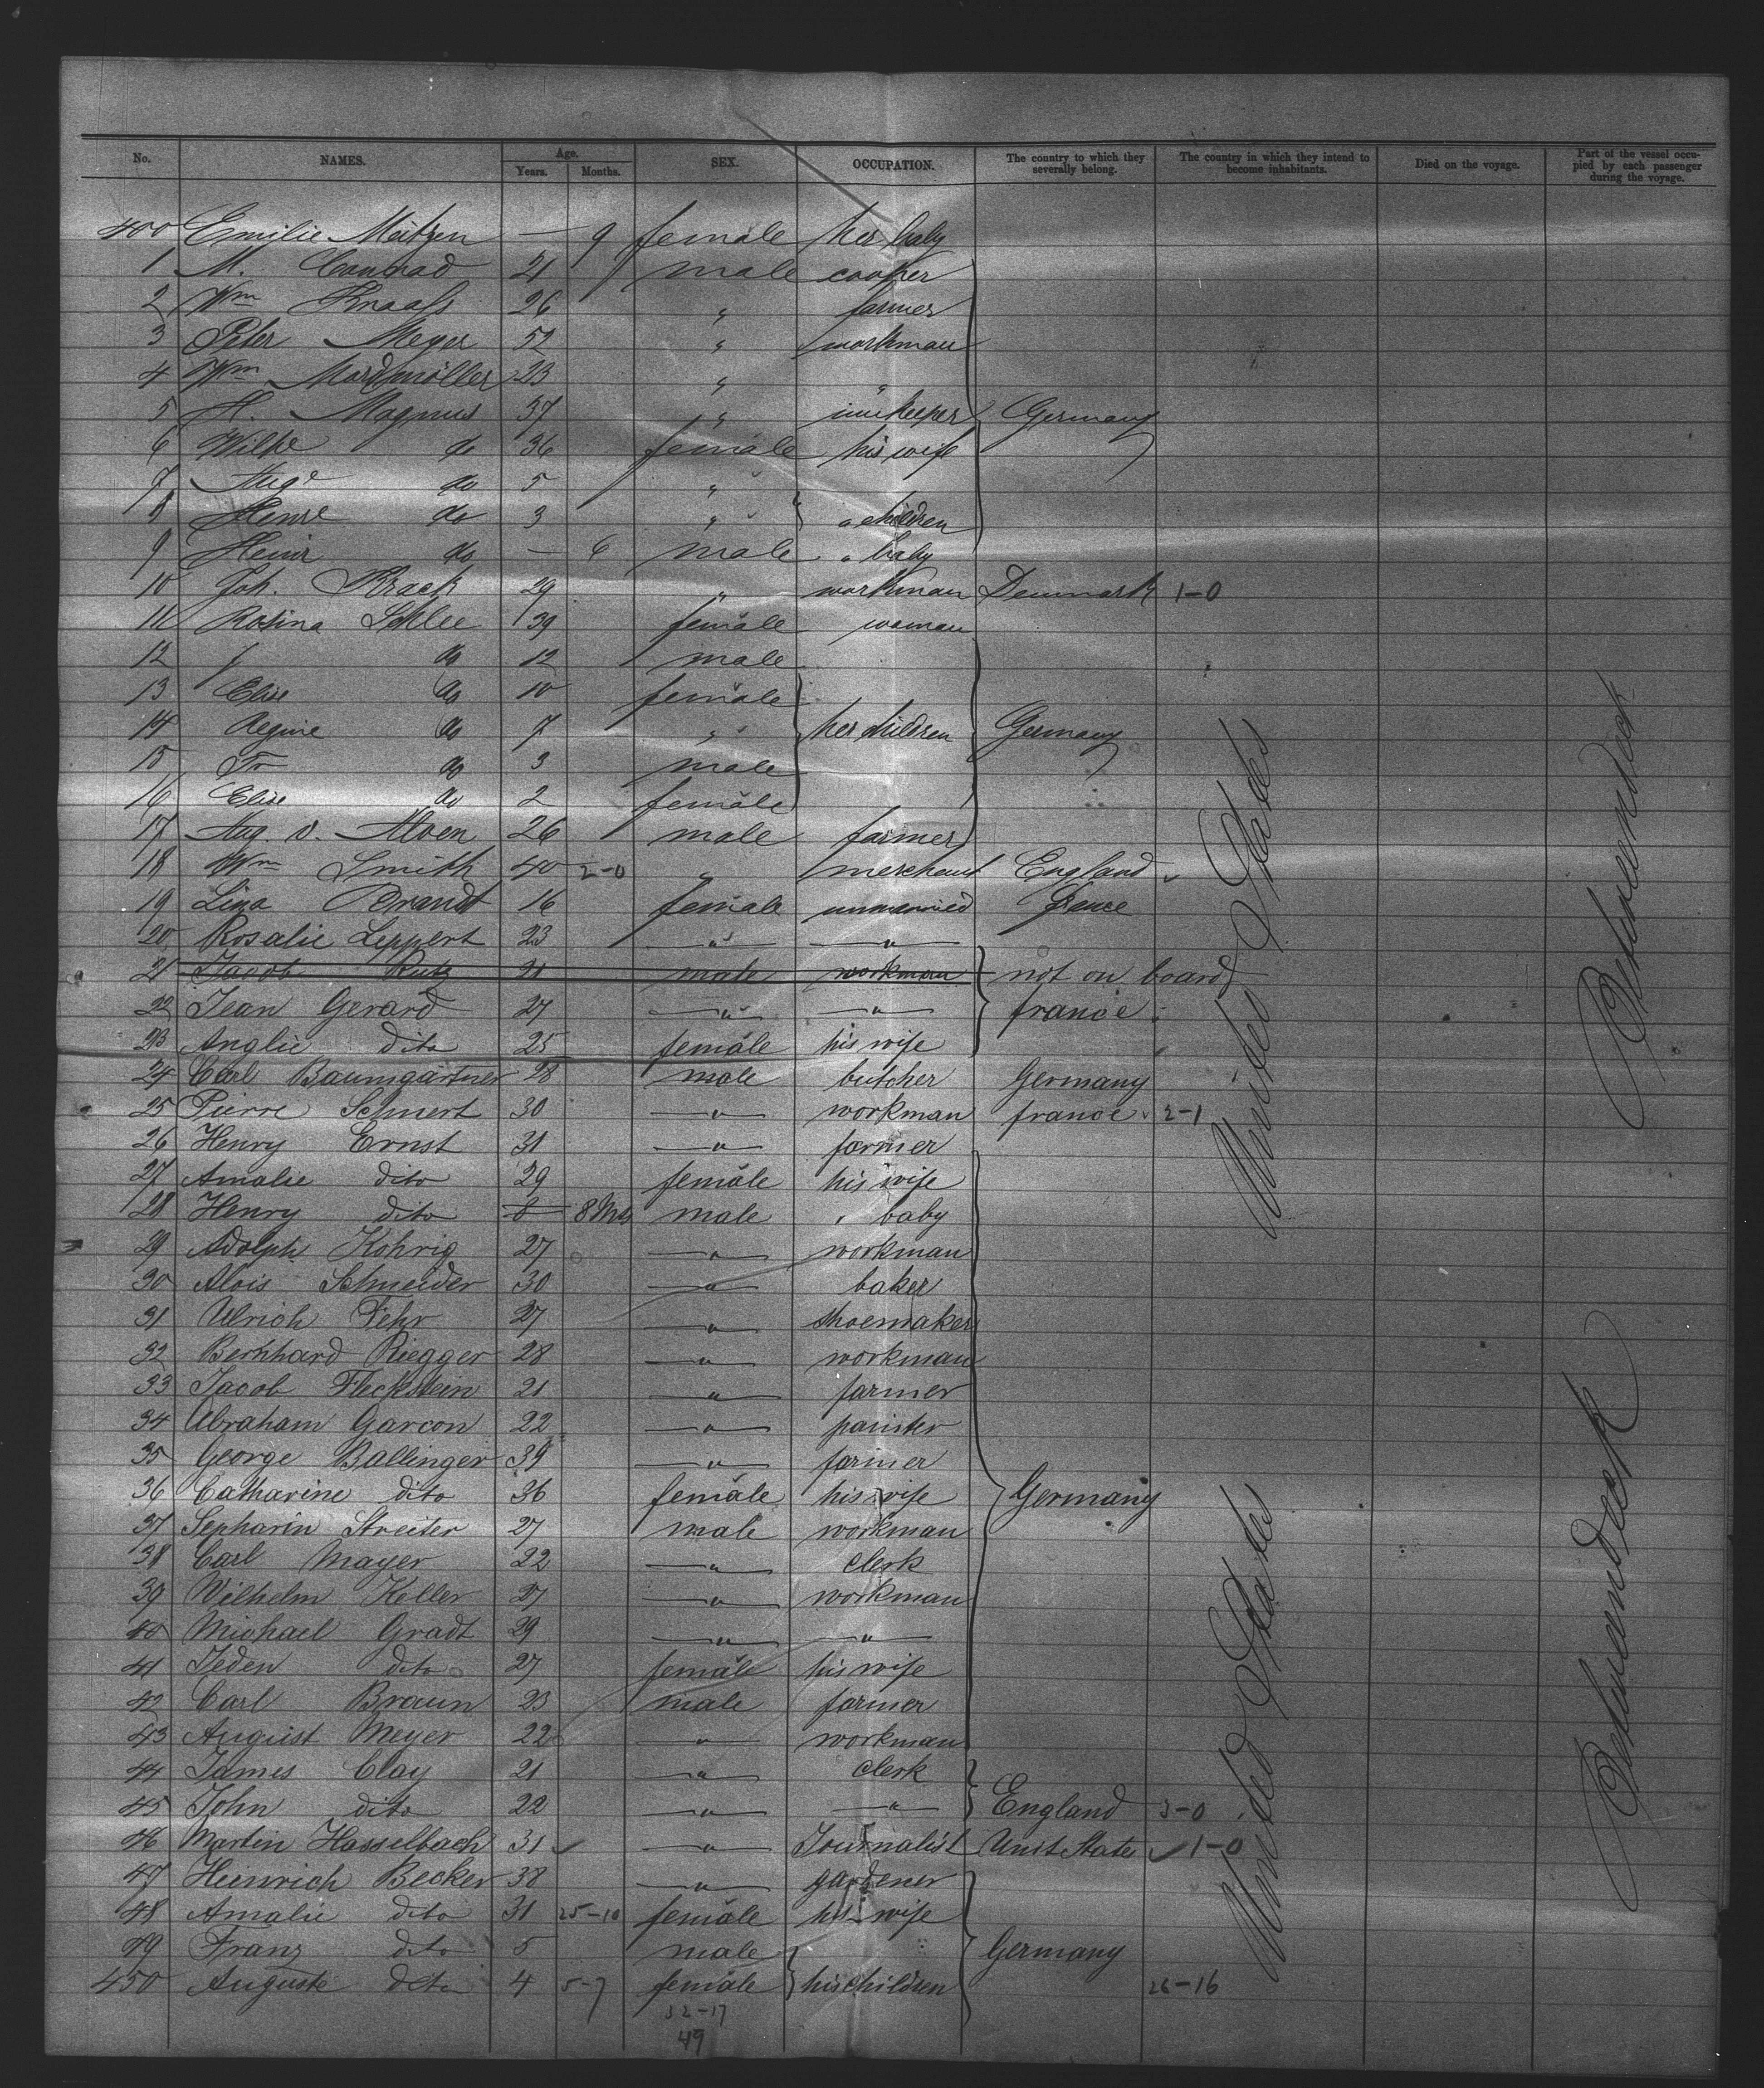 No. NAMES. Age. Years. Months. SEX. OCCUPATION. The country to which they severally belong. The country in which they intend to become inhabitants. Died on the voyage. Part of the vessel occupied by each passenger during the voyage.
400 Emilie Meitzen — 9 female her baby
1 M. Conrad 21 male cooper
2 Wm Knaass 26 " farmer
3 Peter Meyer 52 " workman
4 Wm Mordmöller 23 " "
5 H. Magnus 37 " innkeeper Germany
6 Wilhe do 36 female his wife
7 Auge do 5 "
8 Henre do 3 " " children
9 Heinr do — 6 male " baby
10 Joh. Krack 29 " workman Denmark 1-0
11 Rosina Schlee 39 female woman
12 J do 12 male
13 Elise do 10 female
14 Regine do 7 " her children Germany
15 Fr do 3 male
16 Elise do 2 female
17 Aug. v. Alven 26 male farmer
18 Wm Smith 40 2-0 " merchant England
19 Lina Brandt 16 female unmarried France
20 Rosalie Leppert 23 " "
21 Jacob Rutz 21 male workman not on board
22 Jean Gerard 27 " " france
23 Anglie dito 25 female his wife
24 Carl Baumgärtner 28 male butcher Germany
25 Pierre Schnert 30 " workman france 2-1
26 Henry Ernst 31 " farmer
27 Amalie dito 29 female his wife
28 Henry dito 8 Mts male " baby
29 Adolph Kohrig 27 " workman
30 Alois Schneider 30 " baker
31 Ulrich Fehr 27 " shoemaker
32 Bernhard Riegger 28 " workman
33 Jacob Fleckstein 21 " farmer
34 Abraham Garcon 22 " painter
35 George Ballinger 39 " farmer
36 Catharine dito 36 female his wife Germany
37 Sepharin Streiter 27 male workman
38 Carl Mayer 22 " clerk
39 Wilhelm Keller 27 " workman
40 Michael Gradt 29 " "
41 Jeden dito 27 female his wife
42 Carl Braun 23 male farmer
43 August Meyer 22 " workman
44 James Clay 21 " clerk
45 John dito 22 " " England 3-0
46 Martin Hasselbach 31 " Journalist Unit State 1-0
47 Heinrich Becker 38 " gardener
48 Amalie dito 31 25-10 female his wife
49 Franz dito 5 male Germany
450 Auguste dito 4 5-7 female his children 26-16
32-17
49
United States
United States
Betweendeck
Betweendeck